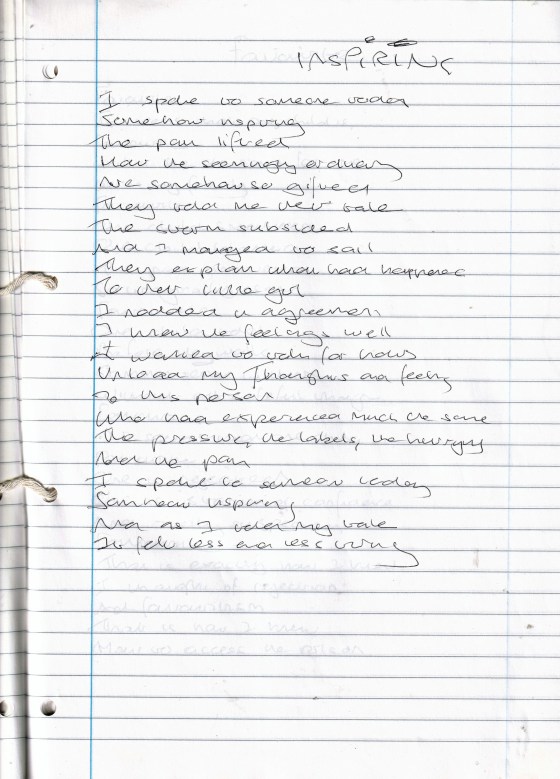 INSPIRING
I spoke to someone today
Somehow inspiring
The pain lifted
How the seemingly ordinary
Are somehow so gifted
They told me their tale
The storm subsided
And I managed to sail
They explain what had happened
To their little girl
I nodded in agreement
I know the feelings well
I wanted to talk for hours
Unload my Thoughts and feelings
To this person
Who had experienced much the same
The pressure, the labels, the hurrying
And the pain
I spoke to someone today
Someone inspiring
And as I told my tale
It felt less and less tiring